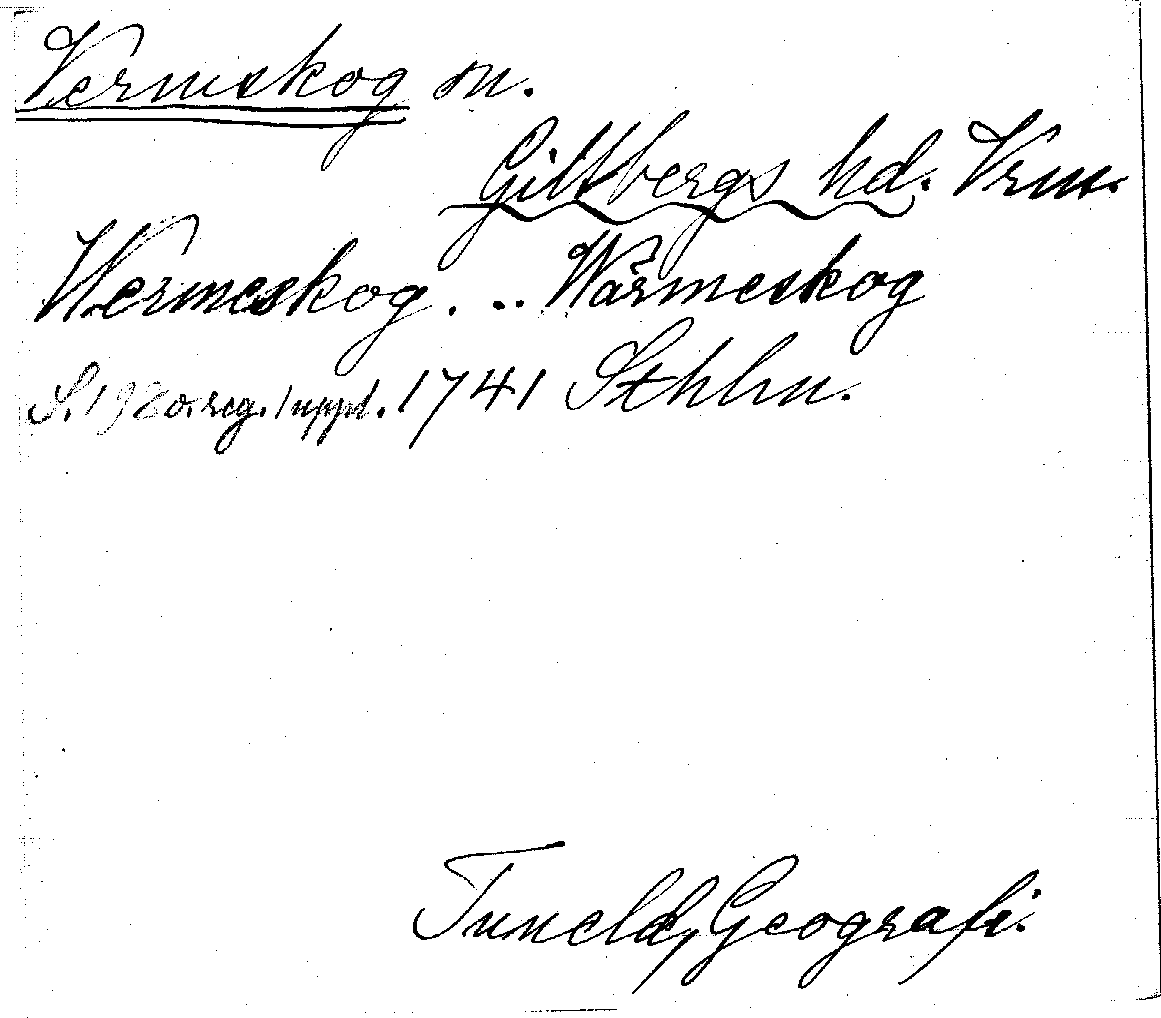 Vermskog sn.
Gillbergs hd. Vrm.
Wermeskog. .. Wärmeskog
S. 198 o. reg. 1 uppl. 1741 Sthlm.
Tuneld, Geografi.